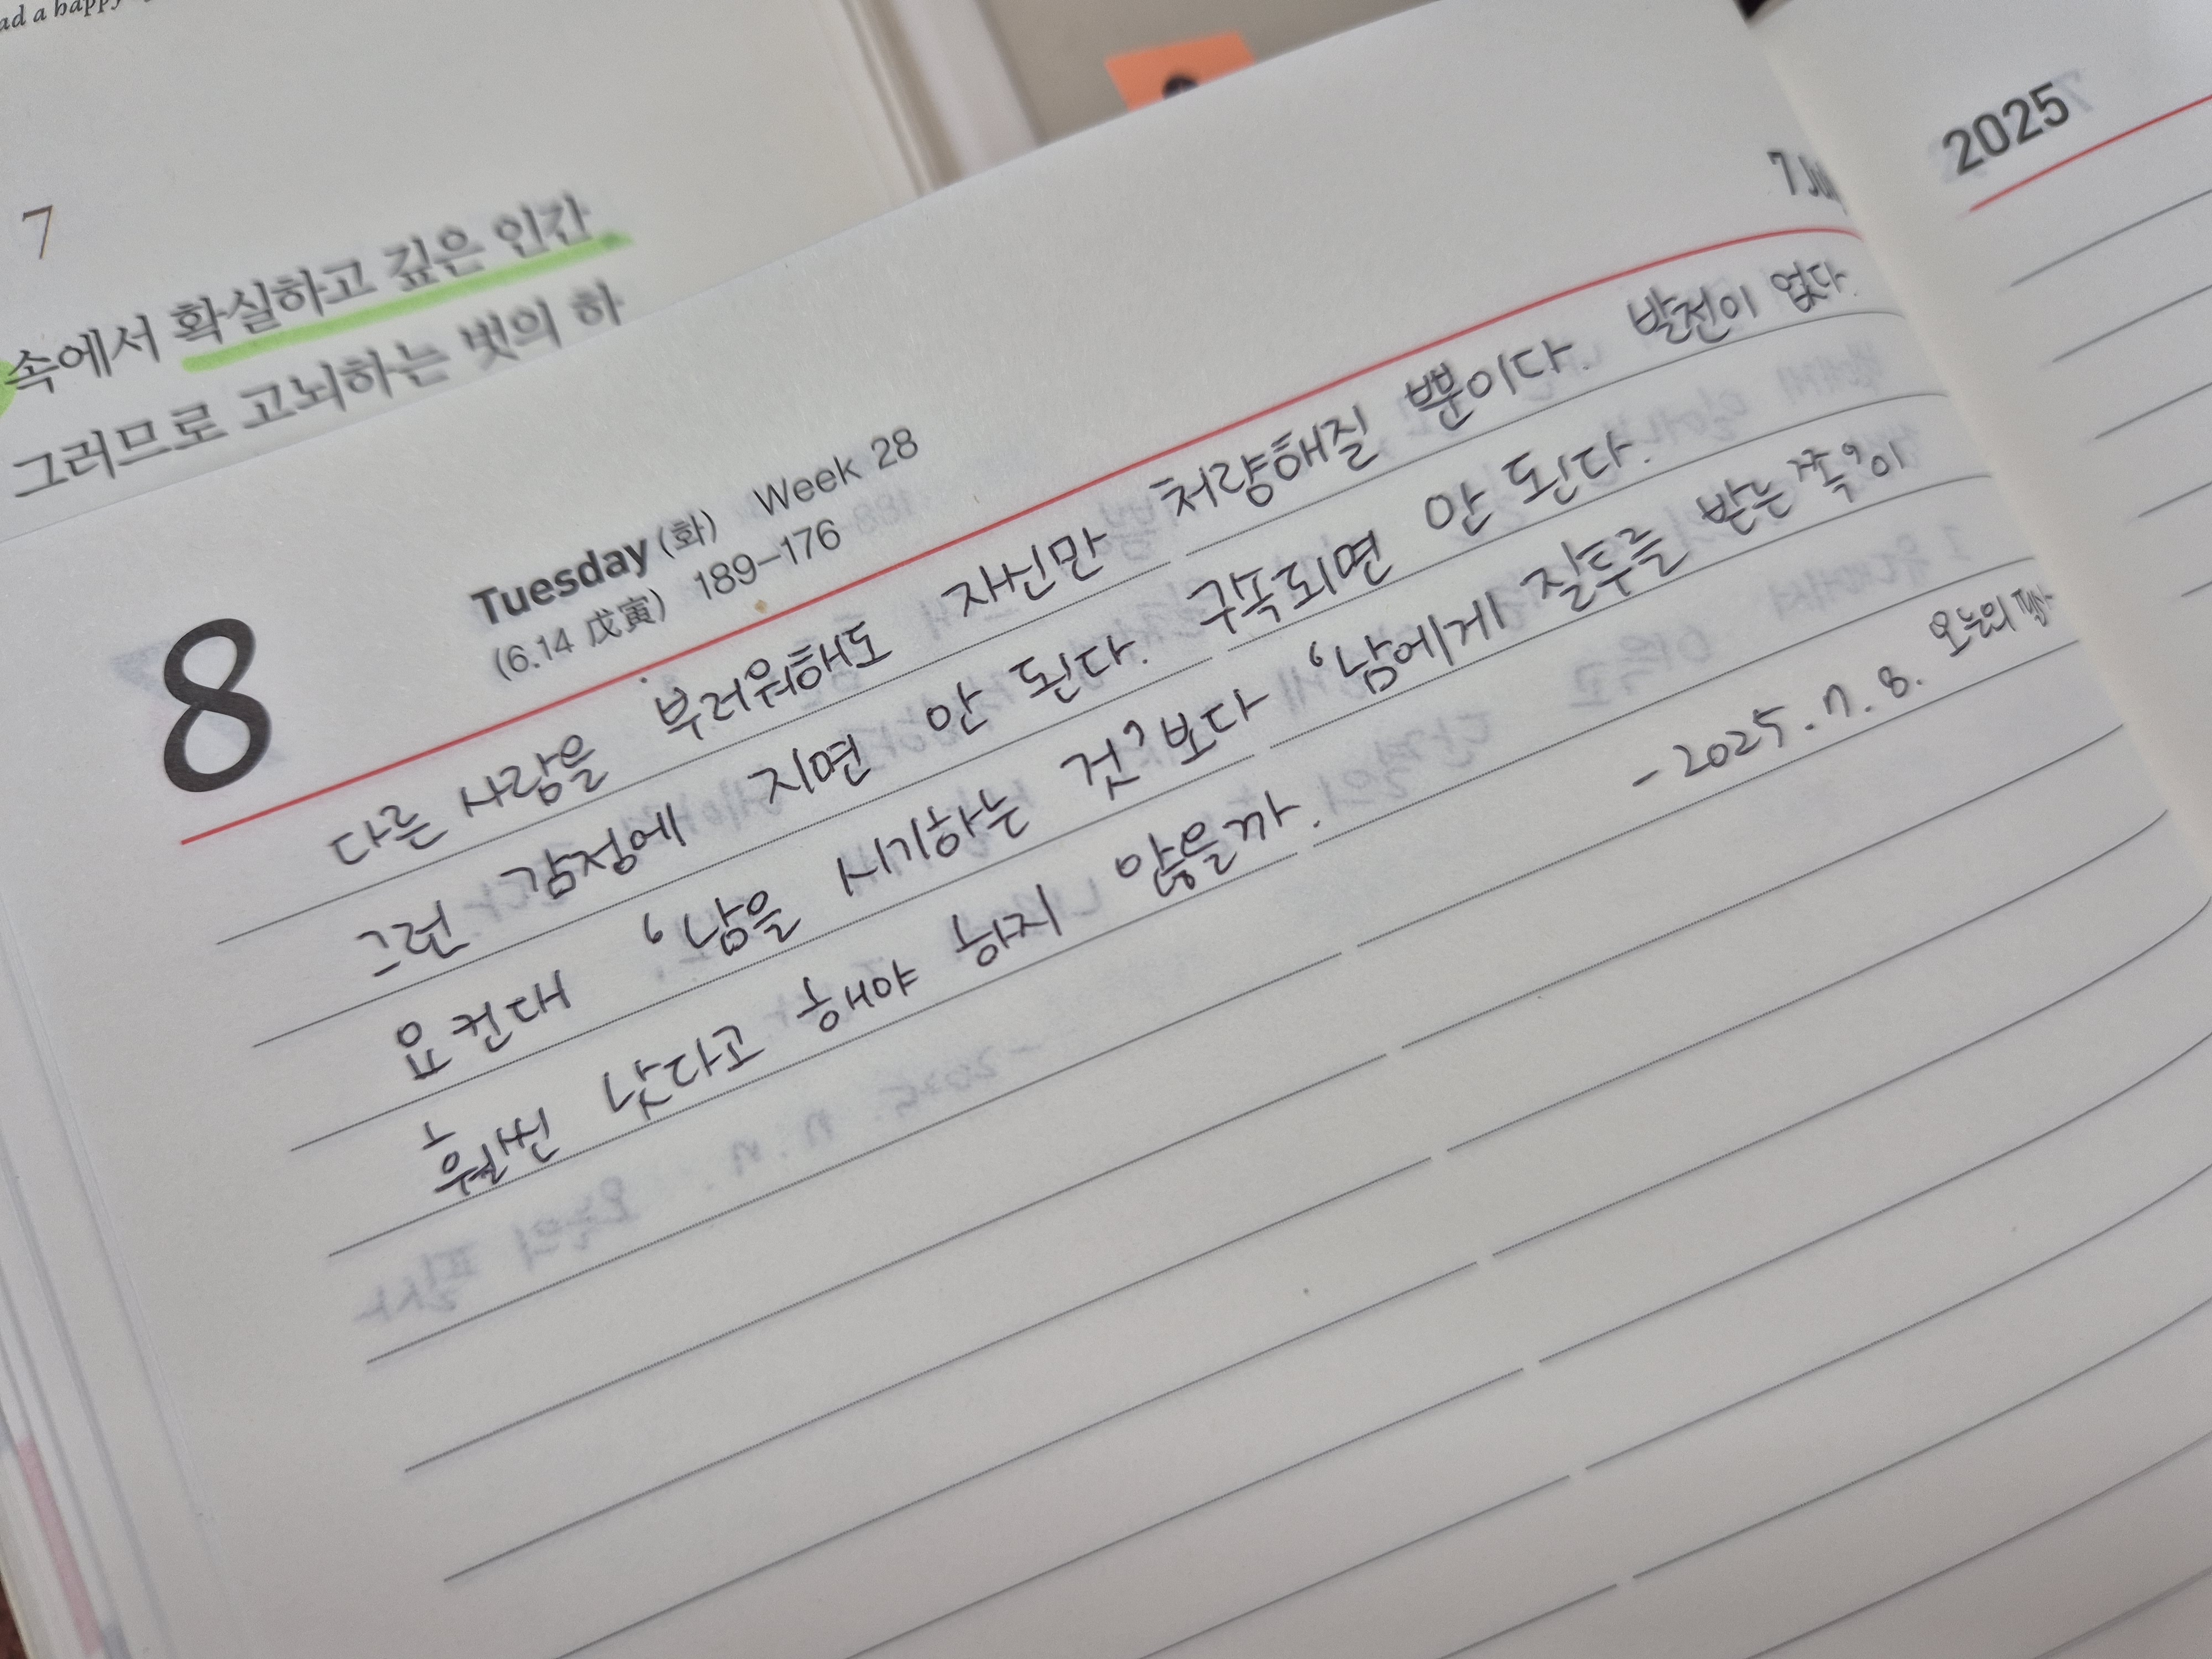 ad a happy
7
속에서 확실하고 깊은 인간
그러므로 고뇌하는 벗의 하
2025
7 July
8
Tuesday (화) Week 28
(6.14 戊寅) 189–176
다른 사람을 부러워해도 자신만 처량해질 뿐이다. 발전이 없다.
그런 감정에 지면 안 된다. 구속되면 안 된다.
요컨대 '남을 시기하는 것'보다 '남에게 질투를 받는 쪽'이
훨씬 낫다고 해야 하지 않을까.
- 2025. 7. 8. 오늘의 필사